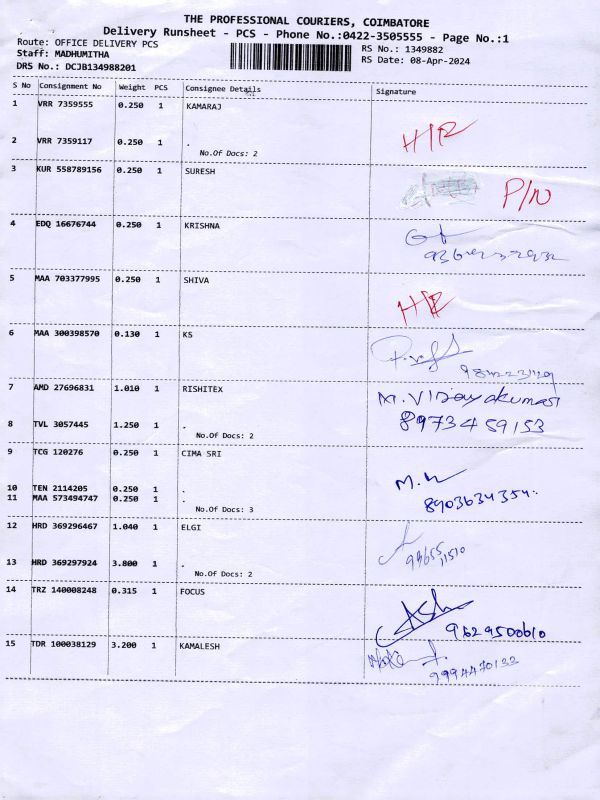 THE PROFESSIONAL COURIERS, COIMBATORE
Delivery Runsheet - PCS - Phone No.:0422-3505555 - Page No.:1
Route: OFFICE DELIVERY PCS
Staff: MADHUMITHA
DRS No.: DCJB134988201
RS No.: 1349882
RS Date: 08-Apr-2024
S No Consignment No Weight PCS Consignee Details Signature
1 VRR 7359555 0.250 1 KAMARAJ
2 VRR 7359117 0.250 1 .
No.Of Docs: 2
3 KUR 558789156 0.250 1 SURESH
P/N
4 EDQ 16676744 0.250 1 KRISHNA
5 MAA 703377995 0.250 1 SHIVA
6 MAA 300398570 0.130 1 KS
7 AMD 27696831 1.010 1 RISHITEX
M. Vijayakumar
8973459153
8 TVL 3057445 1.250 1 .
No.Of Docs: 2
9 TCG 120276 0.250 1 CIMA SRI
10 TEN 2114205 0.250 1 .
11 MAA 573494747 0.250 1 .
8903634354
No.Of Docs: 3
12 HRD 369296467 1.040 1 ELGI
13 HRD 369297924 3.800 1 .
No.Of Docs: 2
14 TRZ 140008248 0.315 1 FOCUS
9629500610
15 TDR 100038129 3.200 1 KAMALESH
9994470132